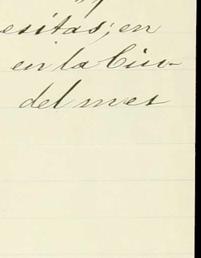 esitas; en
en la Ciu-
del mes